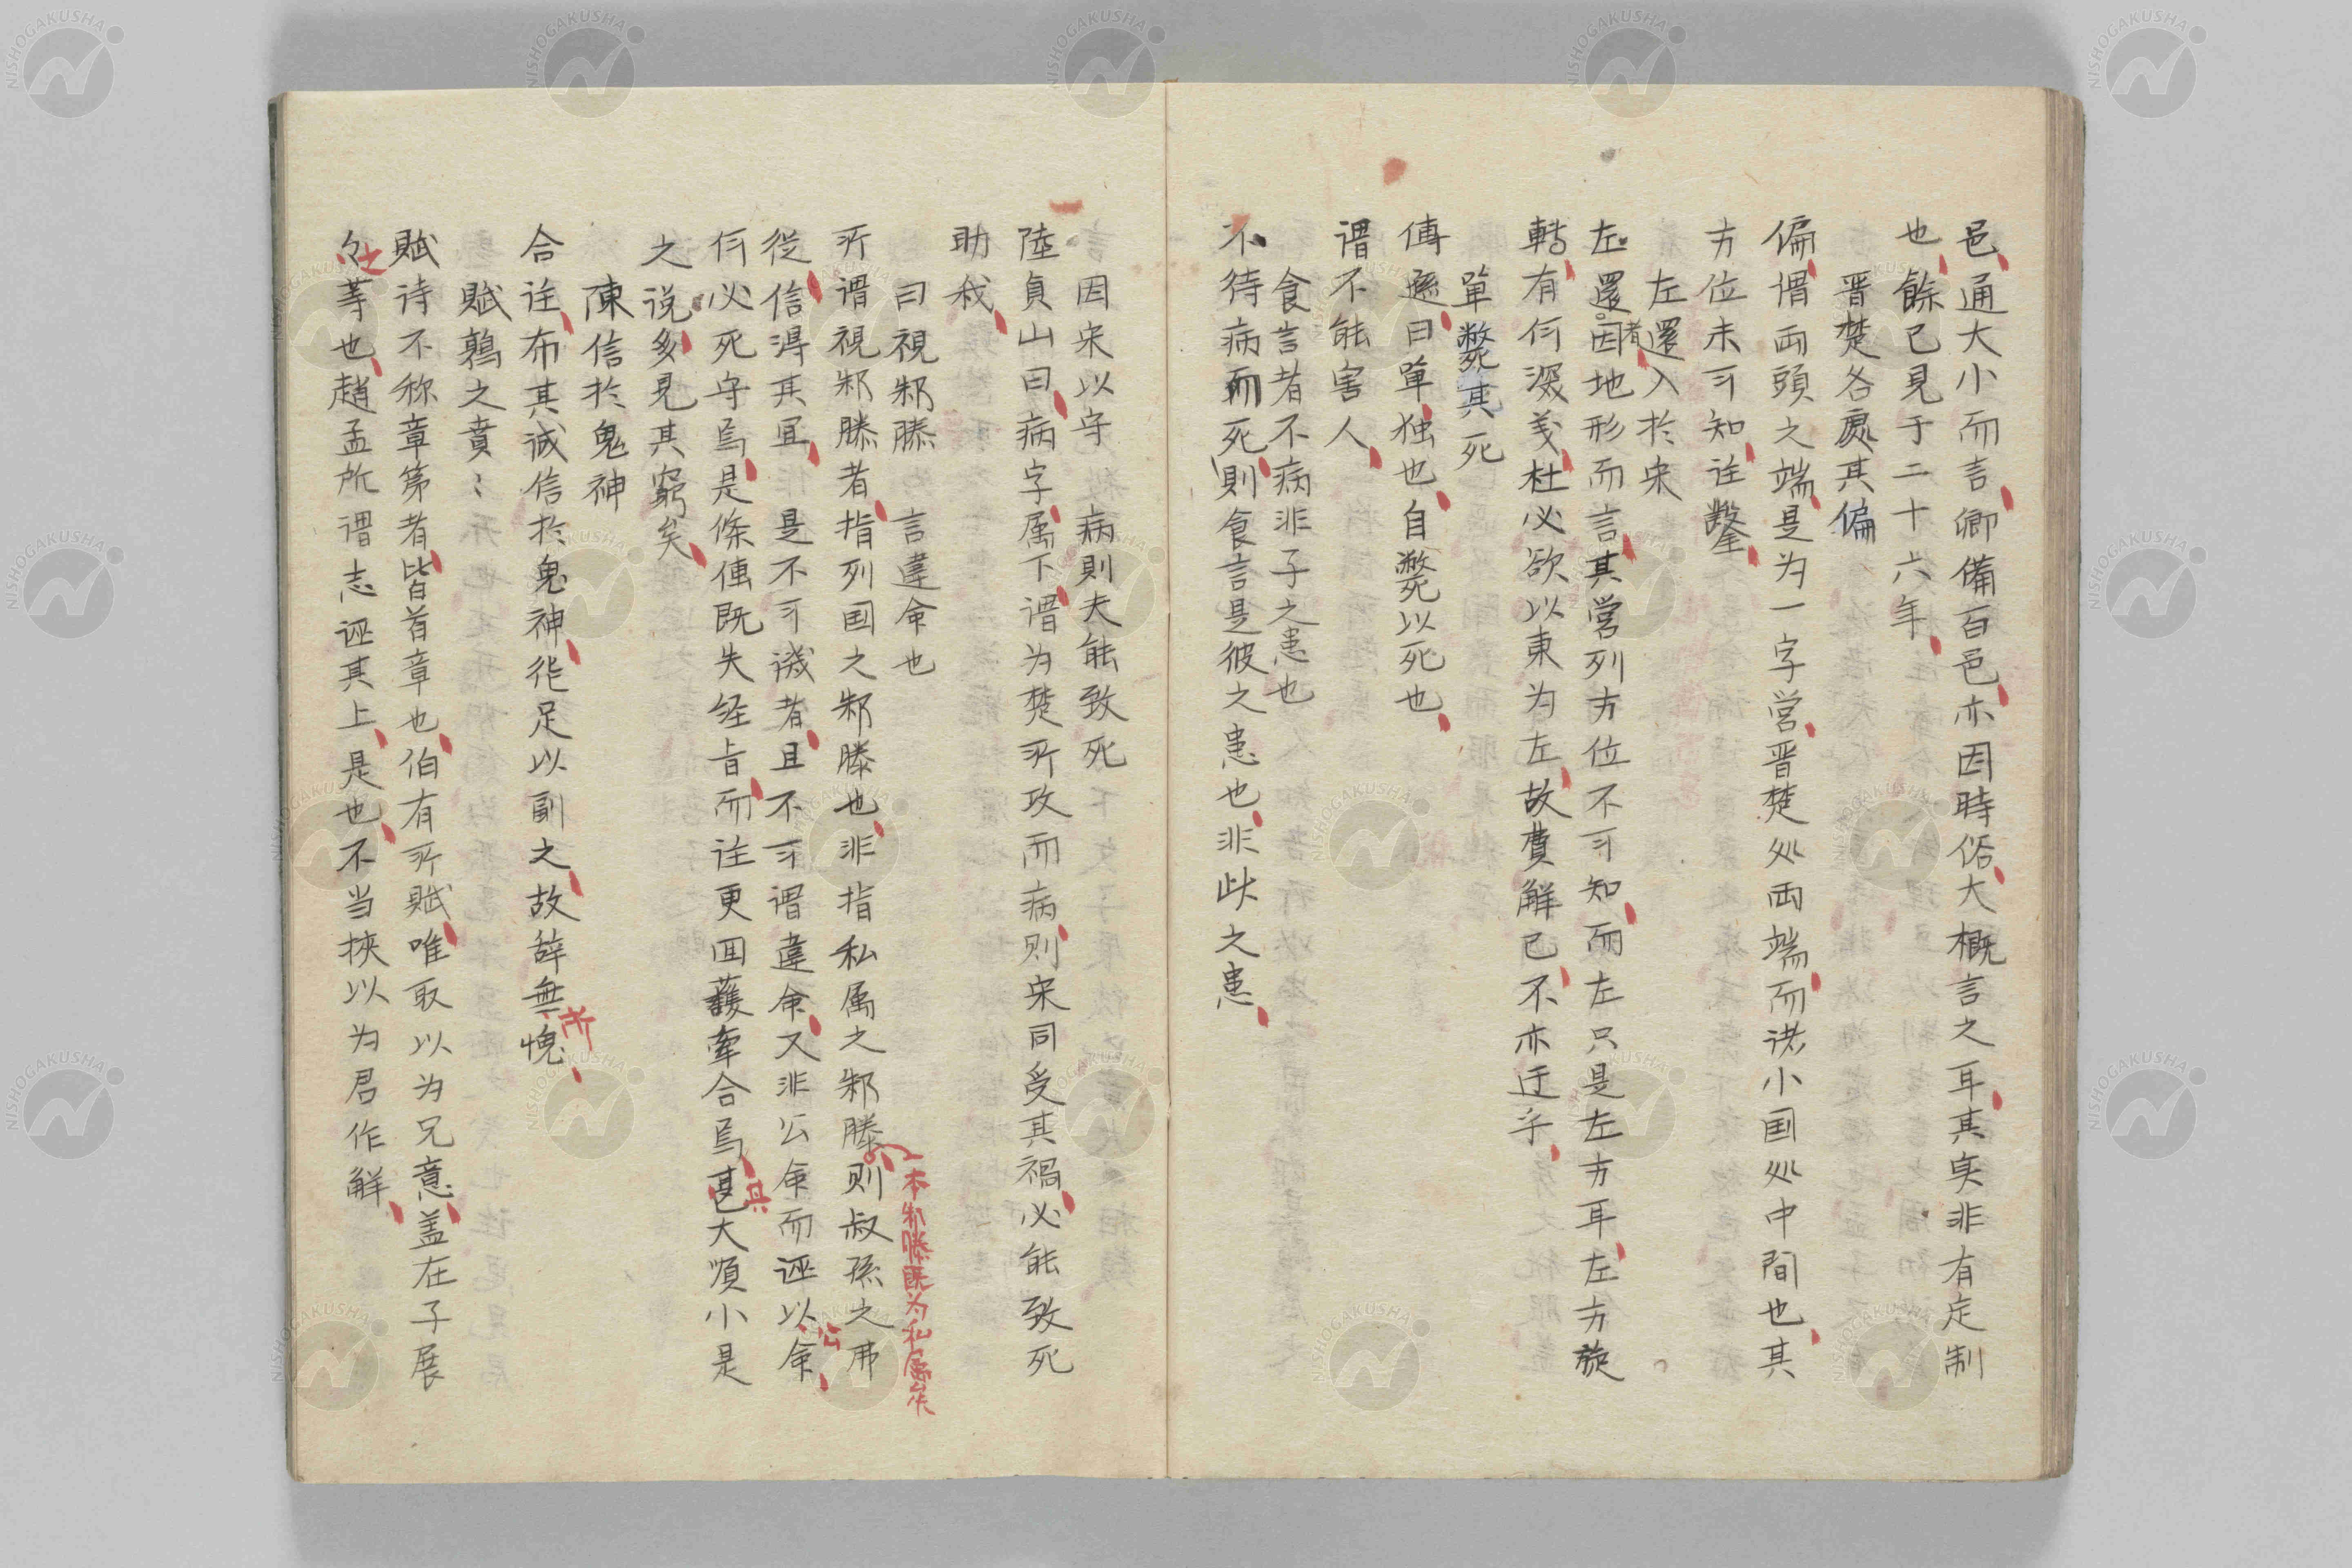 邑通大小而言卿備百邑亦因時俗大概言之耳其实非有定制
也餘已見于二十六年
晋楚各處其偏
偏谓両頭之端是为一字営晋楚处両端而诸小国处中間也其
方位未可知注鑿
左還入於宋
左還者因地形而言其営列方位不可知而左只是左方耳左方旋
轉有何深義杜必欲以東为左故費解已不亦迂乎
單斃其死
傳遜曰單独也自斃以死也
谓不能害人
食言者不病非子之患也
不待病而死則食言是彼之患也非此之患
因宋以守病則夫能致死
陸貞山曰病字属下谓为楚所攻而病则宋同受其禍必能致死
助我
曰視邾滕　言違命也
所谓視邾滕者指列国之邾滕也非指私属之邾滕则叔孫之弗
一本邾滕既为私属矣
従信得其宜　是不可譏者且不可谓違命又非公命而誣以公命
何必死守焉是條傳既失経旨而注更回護牽合焉其甚大順小是
之说多見其窮矣
陳信於鬼神
合注布其诚信於鬼神能足以副之故辞無所愧
賦鶉之賁〻
賦诗不称章第者皆首章也伯有所賦唯取以为兄意盖在子展
々之等也趙孟所谓志誣其上是也不当挾以为君作解
NISHOGAKUSHA